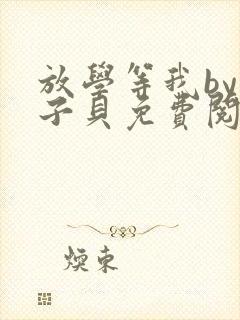 放學等我by
子貝免費閱
東